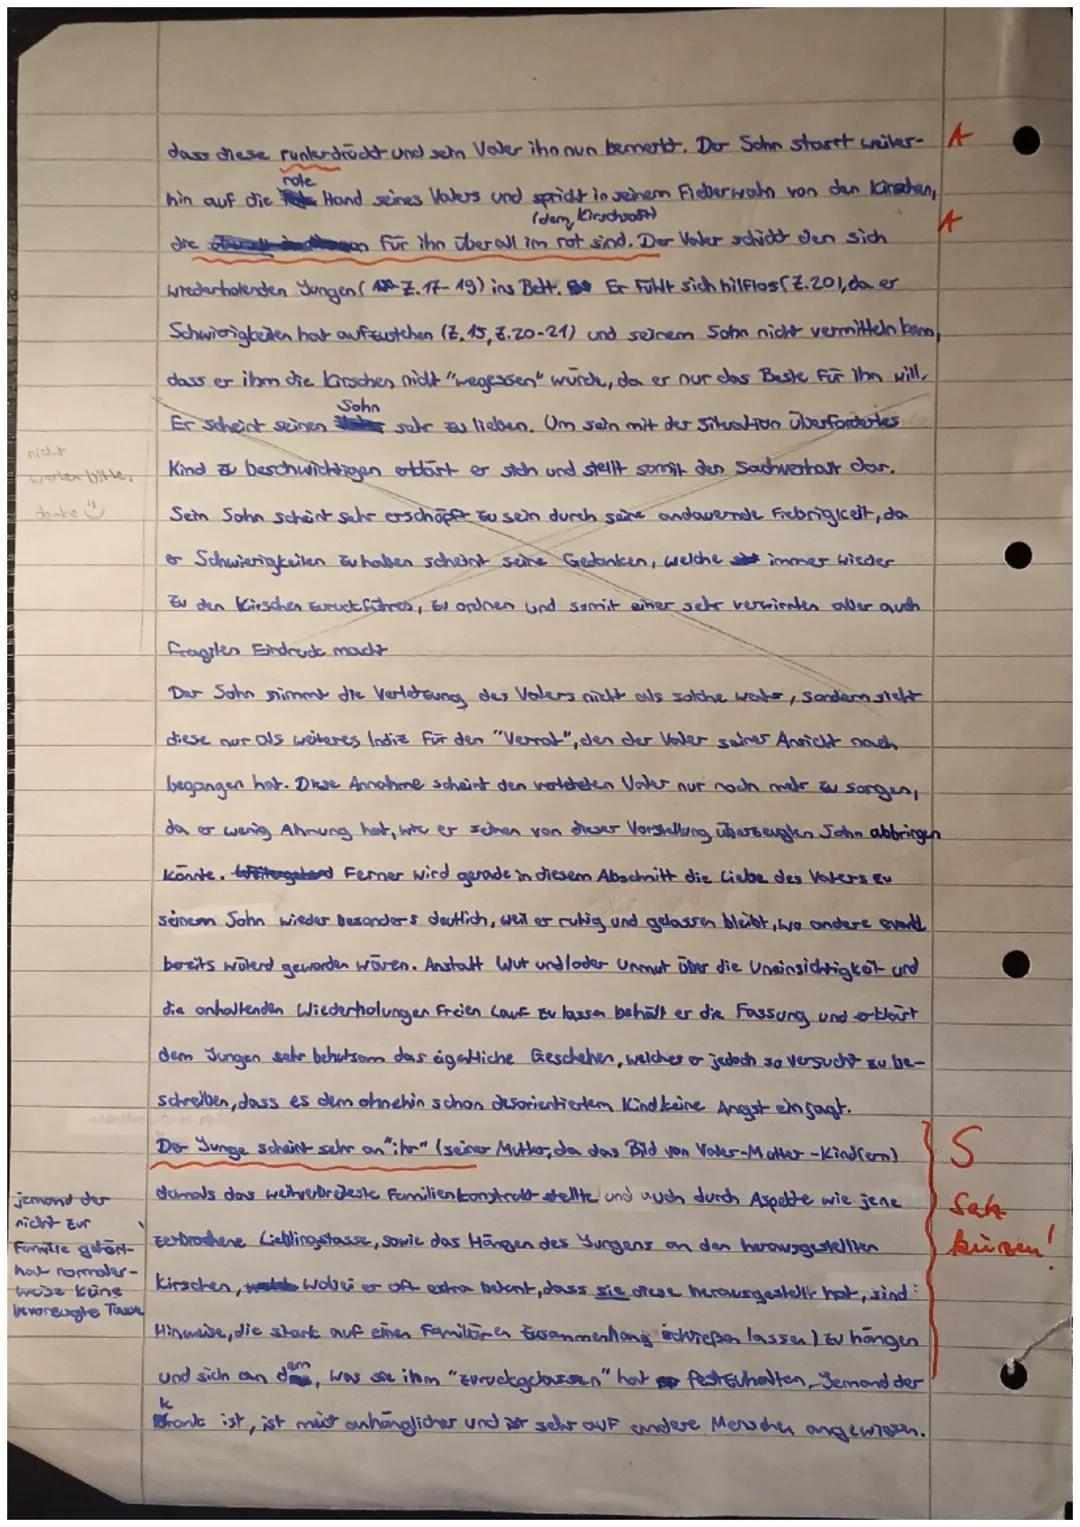 dass diese runterdrückt und sein Vater ihn nun bemerkt. Der Sohn starrt weiter- A
rote
hin auf die Hand seines Vaters und spricht in seinem Fieberwahn von den Kirschen,
(dem Kirschsaft)
die für ihn überall im rot sind. Der Vater schickt den sich A
wiederholenden Jungen (Z. 17-19) ins Bett. Er fühlt sich hilflos (Z. 20), da er
Schwierigkeiten hat aufzustehen (Z. 15, Z. 20-21) und seinem Sohn nicht vermitteln kann,
dass er ihm die Kirschen nicht "wegessen" würde, da er nur das Beste für ihn will.
Sohn
Er scheint seinen sehr zu lieben. Um sein mit der Situation überfordertes
nicht
werten bitte,
danke ü
Kind zu beschwichtigen erklärt er sich und stellt somit den Sachverhalt klar.
Sein Sohn scheint sehr erschöpft zu sein durch seine andauernde Fiebrigkeit, da
er Schwierigkeiten zu haben scheint seine Gedanken, welche immer wieder
zu den Kirschen zurückführen, zu ordnen und somit einen sehr verwirrten aber auch
fragilen Eindruck macht
Der Sohn nimmt die Verletzung des Vaters nicht als solche wahr, sondern sieht
diese nur als weiteres Indiz für den "Verrat", den der Vater seiner Ansicht nach
begangen hat. Diese Annahme scheint den verletzten Vater nur noch mehr zu sorgen,
da er wenig Ahnung hat, wie er seinen von dieser Vorstellung überzeugten Sohn abbringen
könnte. Ferner wird gerade in diesem Abschnitt die Liebe des Vaters zu
seinem Sohn wieder besonders deutlich, weil er ruhig und gelassen bleibt, wo andere
bereits wütend geworden wären. Anstatt Wut und/oder Unmut über die Uneinsichtigkeit und
die anhaltenden Wiederholungen freien Lauf zu lassen behält er die Fassung und erklärt
dem Jungen sehr behutsam das eigentliche Geschehen, welches er jedoch so versucht zu be-
schreiben, dass es dem ohnehin schon desorientiertem Kind keine Angst einjagt.
Der Junge scheint sehr an "ihr" (seiner Mutter, da das Bild von Vater-Mutter-Kind(ern) S
damals das weitverbreiteste Familienkonstrukt stellte und auch durch Aspekte wie jene Satz
zerbrochene Lieblingstasse, sowie das Hängen des Jungens an den herausgestellten kürzen!
jemand der
nicht zur
Familie gehört
hat normaler-
weise keine
bevorzugte Tasse
Kirschen, wobei er oft extra betont, dass sie diese herausgestellt hat, sind
Hinweise, die stark auf einen familiären Zusammenhang schließen lassen) zu hängen
und sich an dem, was sie ihm "zurückgelassen" hat festzuhalten. Jemand der
krank ist, ist meist anhänglicher und ist sehr auf andere Menschen angewiesen.